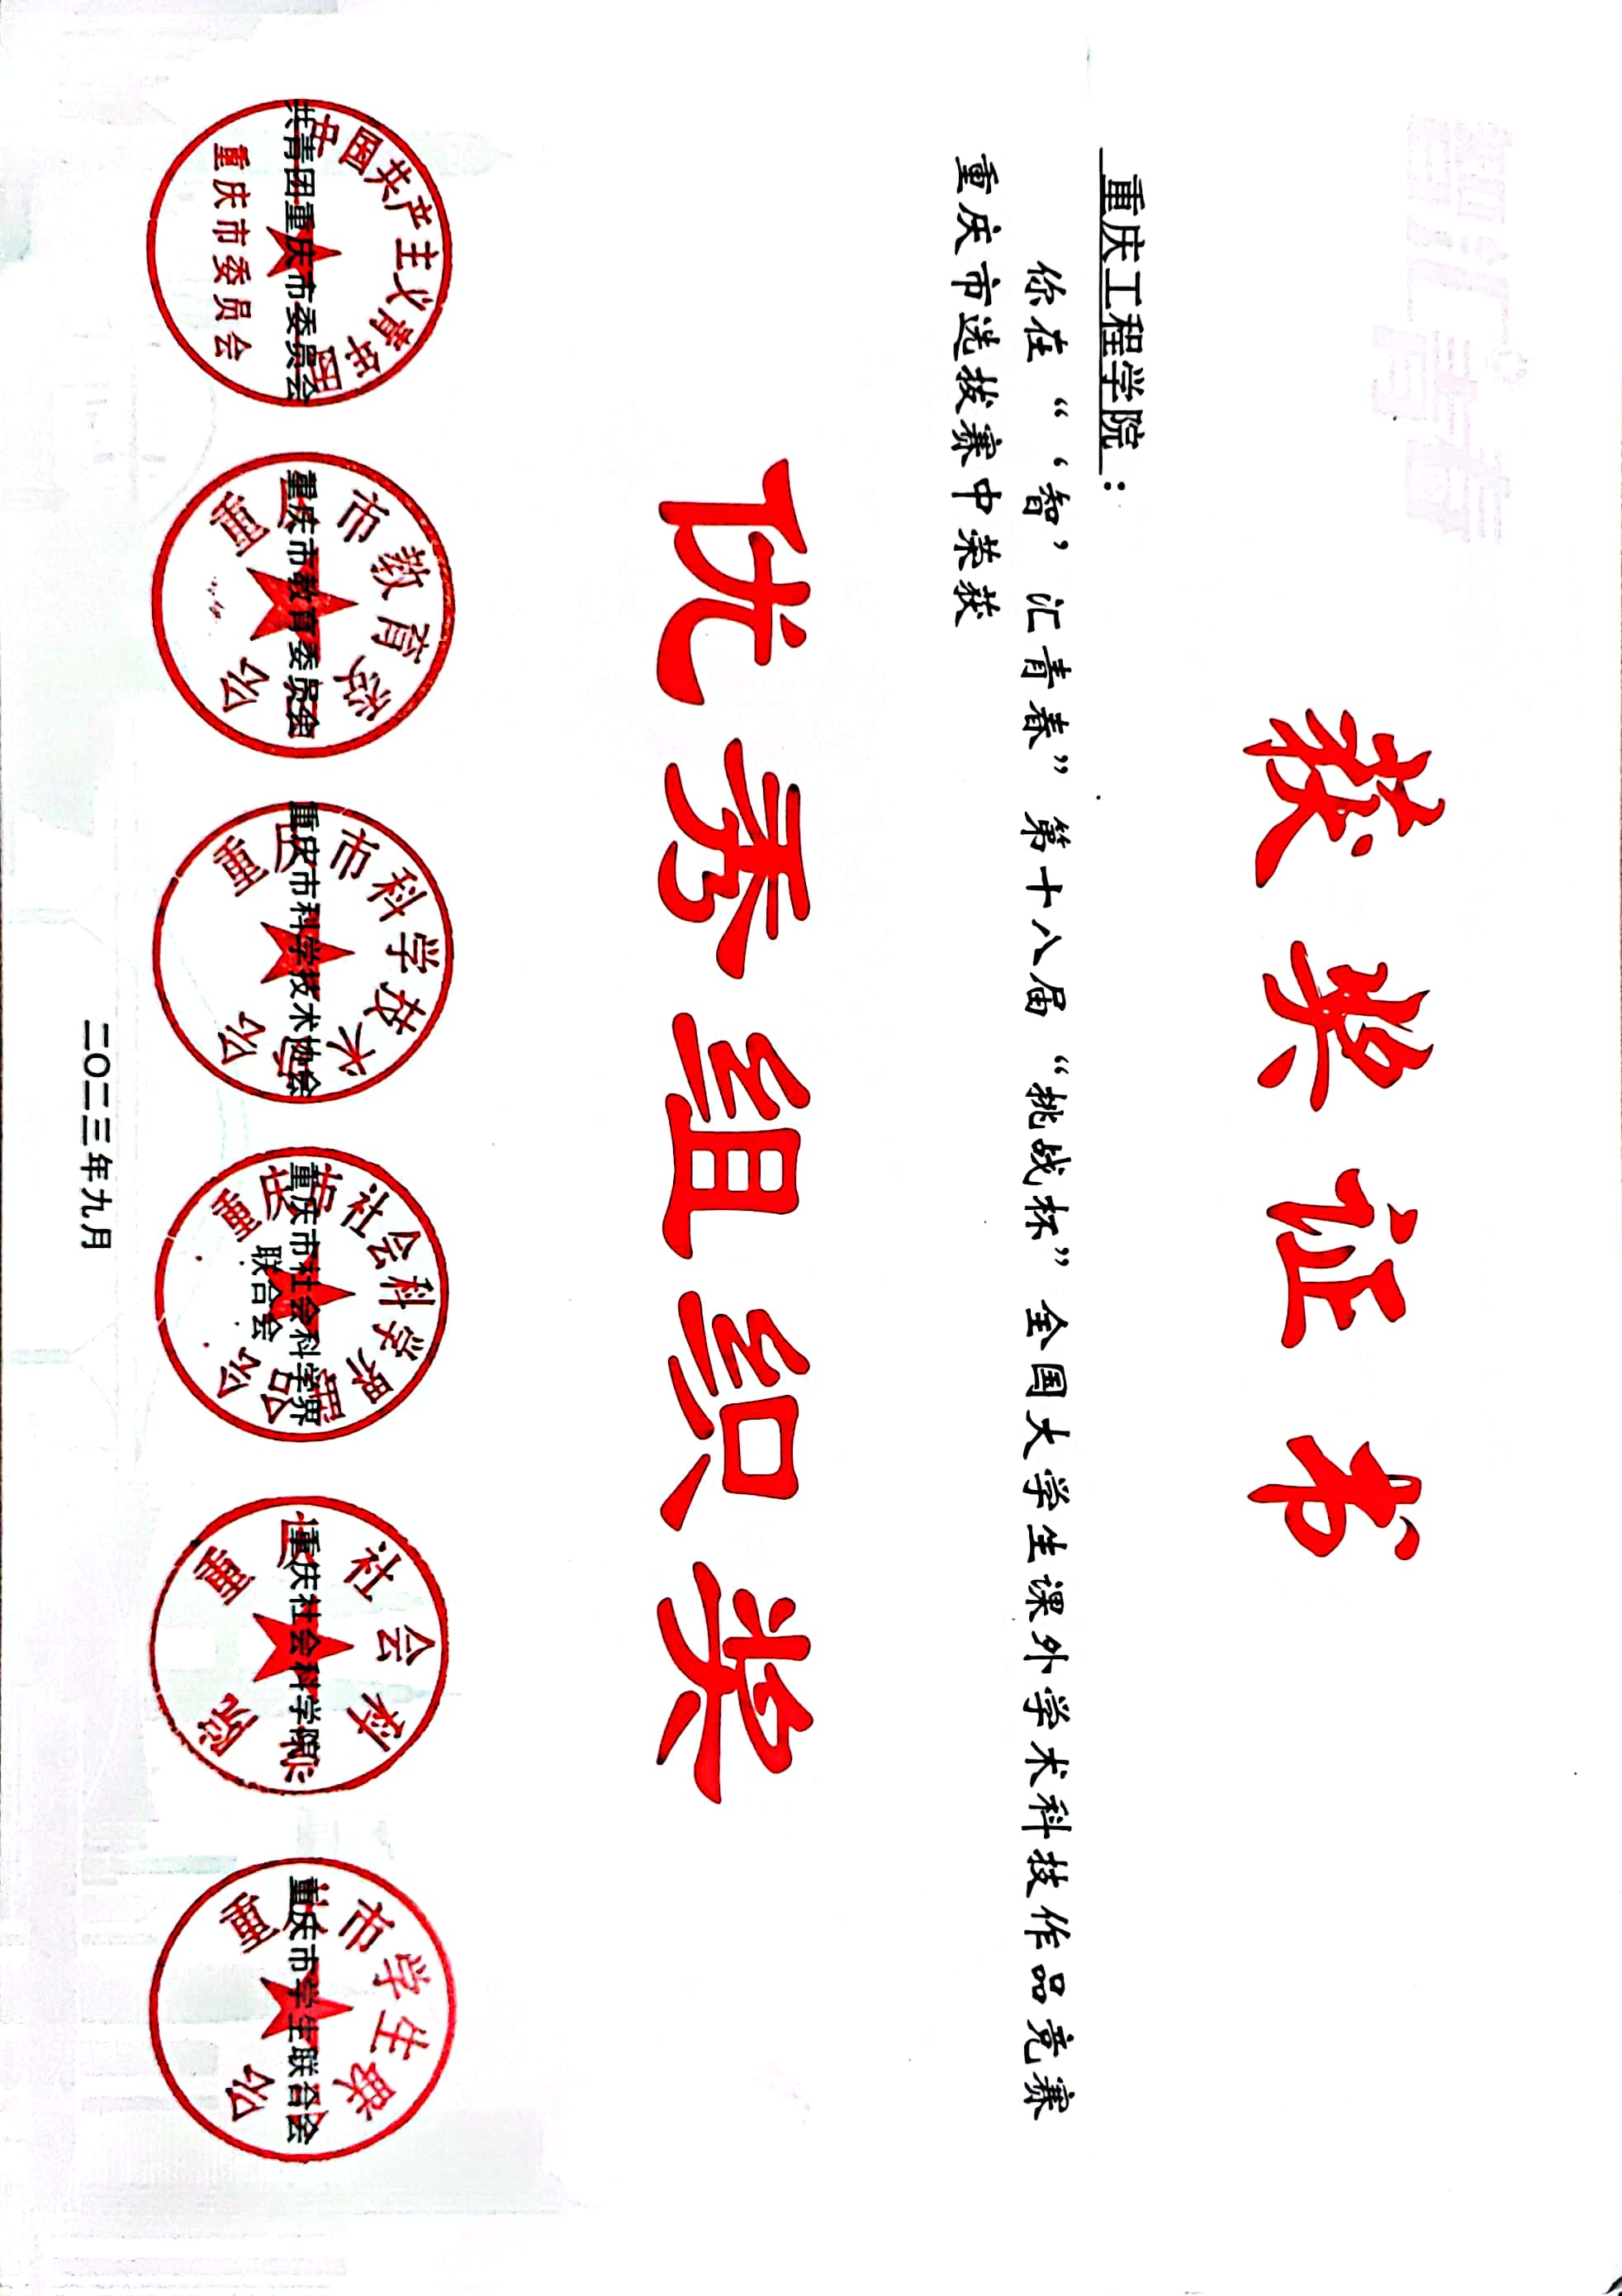 智汇青春
获奖证书
重庆工程学院：
你在“‘智’汇青春”第十八届“挑战杯”全国大学生课外学术科技作品竞赛
重庆市选拔赛中荣获
优秀组织奖
共青团重庆市委员会
中国共产主义青年团
重庆市委员会
重庆市教育委员会
重庆市科学技术协会
重庆市社会科学界
联合会
重庆社会科学院
重庆市学生联合会
二〇二三年九月